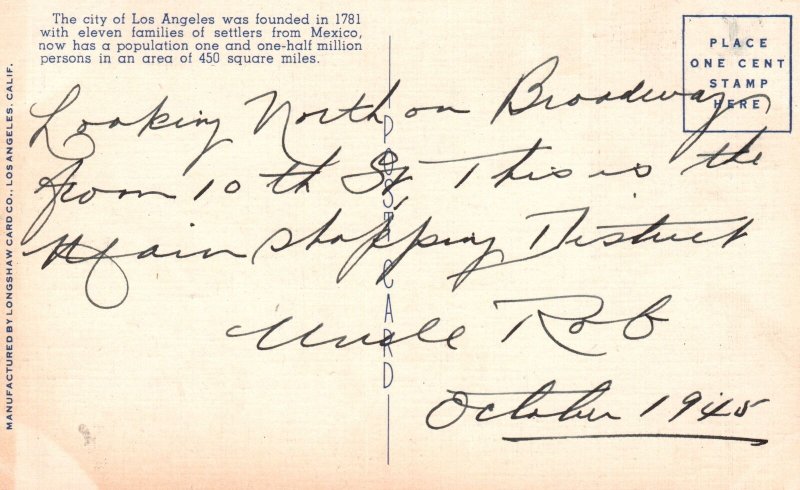 The city of Los Angeles was founded in 1781
with eleven families of settlers from Mexico,
now has a population one and one-half million
persons in an area of 450 square miles.
PLACE
ONE CENT
STAMP
HERE
Looking North on Broadway
from 10th St, This is the
Main shopping District
Uncle Rob
October 1945
POST CARD
MANUFACTURED BY LONGSHAW CARD CO., LOS ANGELES, CALIF.